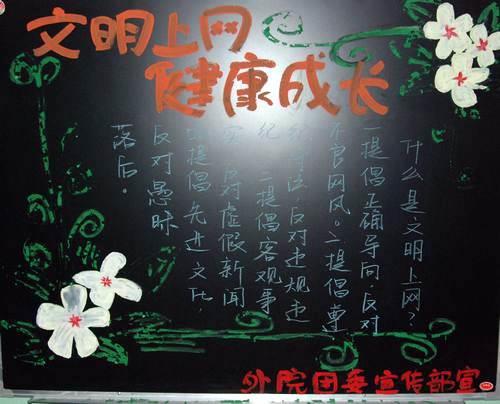 文明上网
健康成长
什么是文明上网?
一提倡正确导向,反对
不良网风。二提倡遵
纪守法,反对违规违
纪 三提倡客观事
实 反对虚假新闻
四提倡先进文化,
反对愚昧
落后。
外院团委宣传部宣